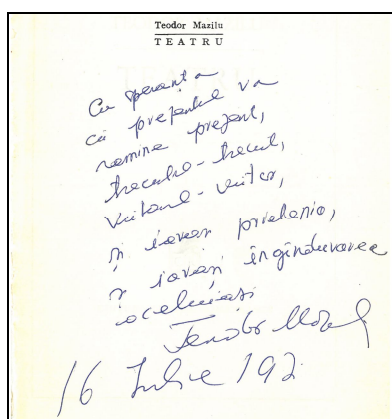 Teodor Mazilu
TEATRU
Cu speranța
că prezentul va
rămîne prezent,
trecutul-trecut,
viitorul-viitor,
și iarăși prietenia,
și iarăși îngîndurarea
aceluiași
Teodor Mazilu
16 Iulie 197